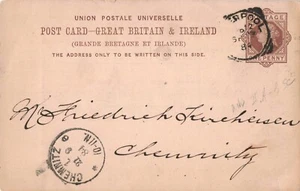 UNION POSTALE UNIVERSELLE
POST CARD—GREAT BRITAIN & IRELAND
(GRANDE BRETAGNE ET IRLANDE)
THE ADDRESS ONLY TO BE WRITTEN ON THIS SIDE.
POSTAGE
ONE PENNY
Mr Friedrich Kircheisen
Chemnitz
CHEMNITZ